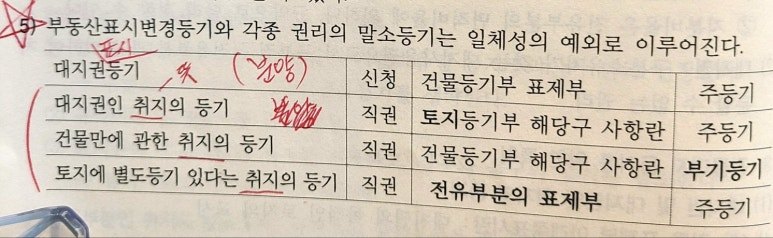 5) 부동산표시변경등기와 각종 권리의 말소등기는 일체성의 예외로 이루어진다.
표시
대지권등기 (분양) 신청 건물등기부 표제부 주등기
대지권인 취지의 등기 직권 토지등기부 해당구 사항란 주등기
건물만에 관한 취지의 등기 직권 건물등기부 해당구 사항란 부기등기
토지에 별도등기 있다는 취지의 등기 직권 전유부분의 표제부 주등기